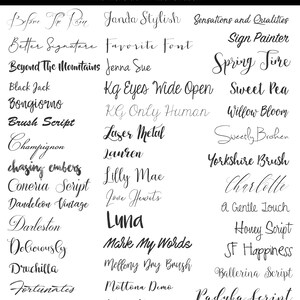 Before The Rain
Better Signature
Beyond The Mountains
Black Jack
Bongiorno
Brush Script
Champignon
chasing embers
Coneria Script
Dandelion Vintage
Darleston
Deliciously
Druchilla
Fortunates
Janda Stylish
Favorite Font
Jenna Sue
Kg Eyes Wide Open
KG Only Human
Laser Metal
Lauren
Lilly Mae
Love Hewits
Luna
Mark My Words
Mellony Dry Brush
Mottona Demo
Sensations and Qualities
Sign Painter
Spring Time
Sweet Pea
Willow Bloom
Sweetly Broken
Yorkshire Brush
Charlotte
A Gentle Touch
Honey Script
SF Happiness
Ballerina Script
Script